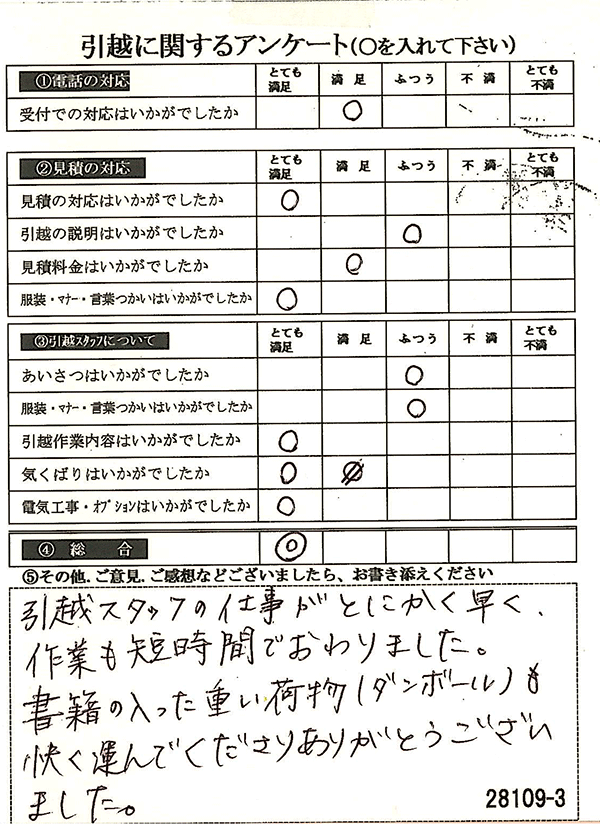 引越に関するアンケート(○を入れて下さい)
①電話の対応 とても満足 満足 ふつう 不満 とても不満
受付での対応はいかがでしたか ○
②見積の対応 とても満足 満足 ふつう 不満 とても不満
見積の対応はいかがでしたか ○
引越の説明はいかがでしたか ○
見積料金はいかがでしたか ○
服装・マナー・言葉つかいはいかがでしたか ○
③引越スタッフについて とても満足 満足 ふつう 不満 とても不満
あいさつはいかがでしたか ○
服装・マナー・言葉つかいはいかがでしたか ○
引越作業内容はいかがでしたか ○
気くばりはいかがでしたか ○
電気工事・オプションはいかがでしたか ○
④総合 ◎
⑤その他.ご意見.ご感想などございましたら、お書き添えください
引越スタッフの仕事がとにかく早く、
作業も短時間でおわりました。
書籍の入った重い荷物(ダンボール)も
快く運んでくださりありがとうござい
ました。
28109-3